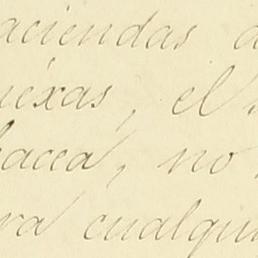 haciendas
anexas, el
bacea, no
ra cualqui